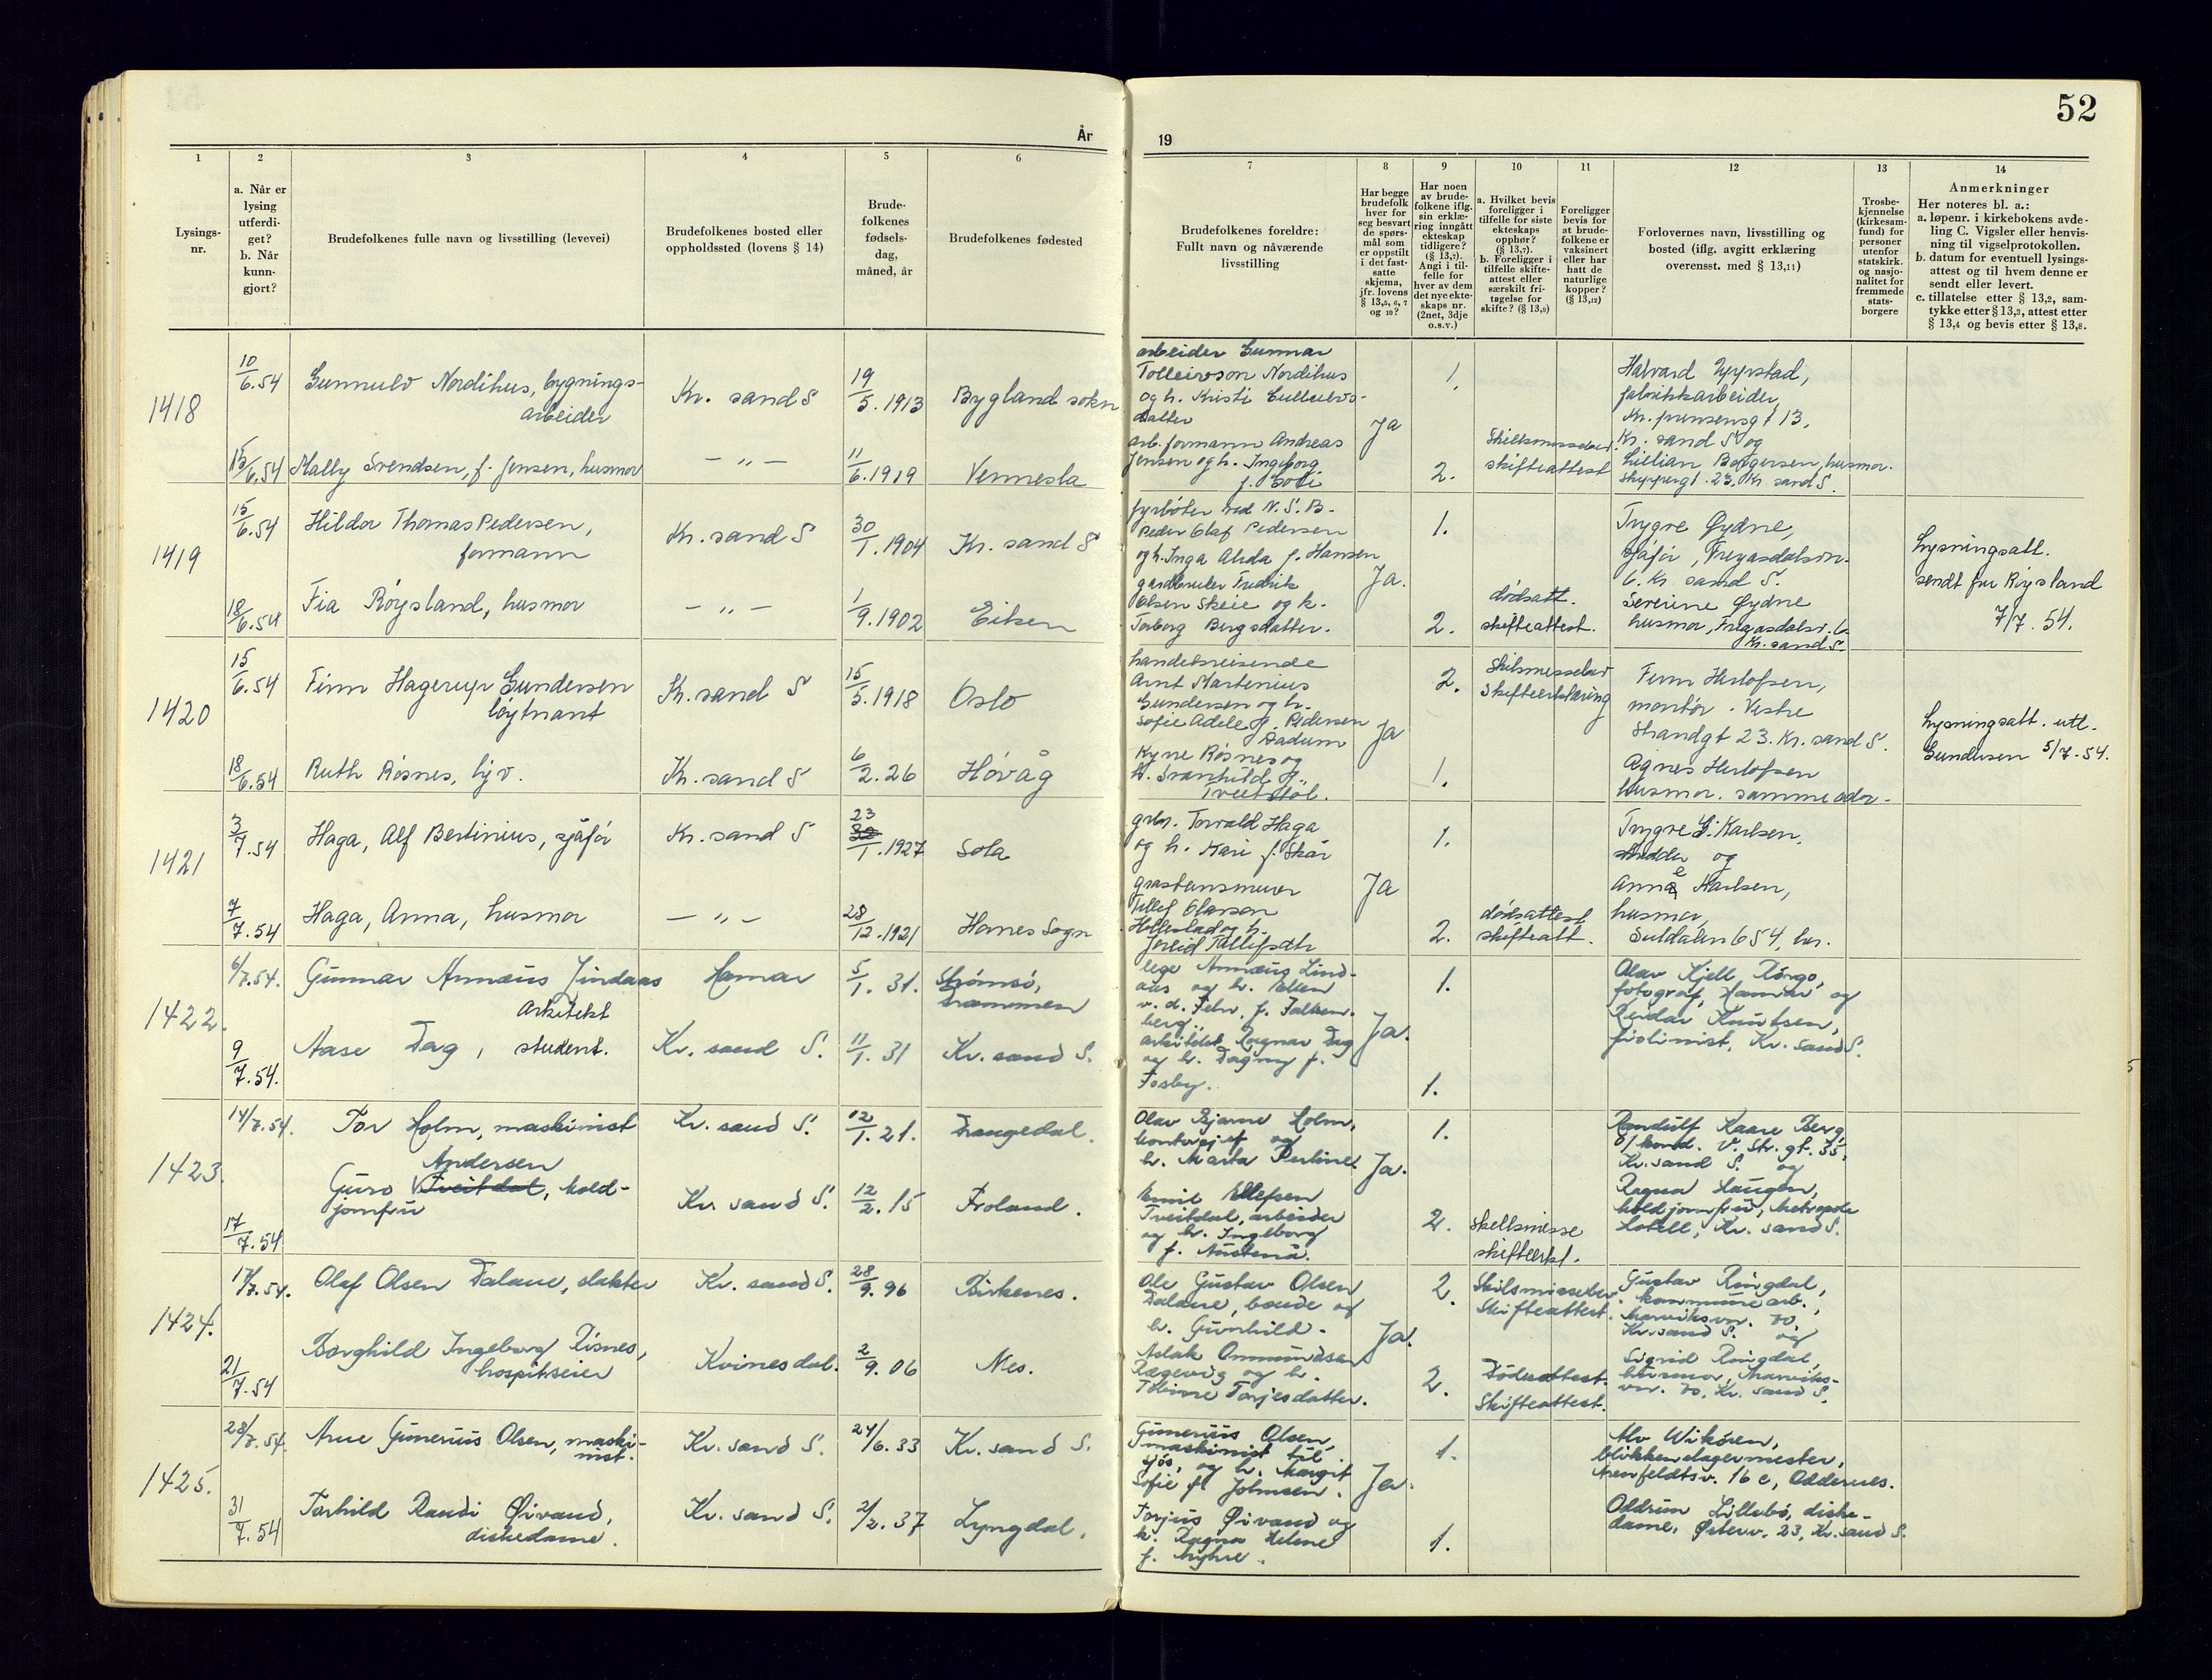 52
År
19
1
2
3
4
5
6
7
8
9
10
11
12
13
14
Lysings-
nr.
a. Når er
lysing
utferdi-
get?
b. Når
kunn-
gjort?
Brudefolkenes fulle navn og livsstilling (levevei)
Brudefolkenes bosted eller
oppholdssted (lovens § 14)
Brude-
folkenes
fødsels-
dag,
måned, år
Brudefolkenes fødested
Brudefolkenes foreldre:
Fullt navn og nåværende
livsstilling
Har begge
brudefolk
hver for
seg besvart
de spørs-
mål som
er oppstilt
i det fast-
satte
skjema,
jfr. lovens
§ 13,5, 6, 7
og 10?
Har noen
av brude-
folkene iflg.
sin erklæ-
ring inngått
ekteskap
tidligere?
(§ 13,7).
Angi i til-
felle for
hver av dem
det nye ekte-
skaps nr.
(2net, 3dje
o.s.v.)
a. Hvilket bevis
foreligger i
tilfelle for siste
ekteskaps
opphør?
(§ 13,7).
b. Foreligger i
tilfelle skifte-
attest eller
særskilt fri-
tagelse for
skifte? (§ 13,9)
Foreligger
bevis for
at brude-
folkene er
vaksinert
eller har
hatt de
naturlige
kopper?
(§ 13,12)
Forlovernes navn, livsstilling og
bosted (iflg. avgitt erklæring
overensst. med § 13,11)
Trosbe-
kjennelse
(kirkesam-
fund) for
personer
utenfor
statskirk.
og nasjo-
nalitet for
fremmede
stats-
borgere
Anmerkninger
Her noteres bl. a.:
a. løpenr. i kirkebokens avde-
ling C. Vigsler eller henvis-
ning til vigselprotokollen.
b. datum for eventuell lysings-
attest og til hvem denne er
sendt eller levert.
c. tillatelse etter § 13,2, sam-
tykke etter § 13,3, attest etter
§ 13,4 og bevis etter § 13,8.
1418
10/6.54
Gunnulv Nordihus, bygnings-
arbeider
Kr. sand S
19/5.1913
Bygland sokn
arbeider Gunnar
Tolleivson Nordihus
og h. Kristi
datter
Ja
1.
Halvard
fabrikkarbeider,
13,
Kr. sand S og
15/6.54
Mally Svendsen, f. Jensen, husmor
— " —
11/6.1919
Vennesla
arb. formann Andreas
Jensen og h. Ingeborg
f.
2.
Skilsmissebev.
skifteattest
Lillian Borgersen, husmor.
Skippergt. 23, Kr. sand S.
1419
15/6.54
Hildor Thomas Pedersen,
formann
Kr. sand S
30/1.1904
Kr. sand S
fyrbøter ved N.S.B.
Peder Olaf Pedersen
og h. Inga Alida f. Hansen
Ja.
1.
Trygve Øydne,
sjåfør,
6. Kr. sand S.
Lysningsatt.
sendt fru Røysland
7/7. 54.
18/6.54
Fia Røysland, husmor
— " —
1/9.1902
Eiken
gardbruker Fredrik
Olsen Skeie og h.
Torborg Bergsdatter.
2.
dødsatt.
skifteattest.
Øydne
husmor,
Kr. sand S.
1420
15/6.54
Finn Hagerup Gundersen
løytnant
Kr. sand S
15/5.1918
Oslo
handelsreisende
Arnt Martinius
Gundersen og h.
Sofie Adele f. Pedersen
Ja
2.
Skilsmissebev
Skifteerklæring
Finn Herlofsen,
montør. Vestre
Strandgt 23. Kr. sand S.
Lysningsatt. utl.
Gundersen 5/7-54.
18/6.54
Ruth Røsnes, hjv.
Kr. sand S
6/2.26
Høvåg
Røsnes og
h. Svanhild f.
Tveitstøl.
1.
Agnes Herlofsen
Husmor. samme adr.
1421
3/7.54
Haga, Alf Bertinius, sjåfør
Kr. sand S
23
1.1927
Sola
grbr. Torvald Haga
og h. Mari f. Skår
Ja
1.
Trygve G. Karlsen,
og
7/7.54
Haga, Anna, husmor
— " —
28/12.1921
Hornes Sogn
Olavson
og h.
2.
dødsattest
skifteatt.
Anne Karlsen,
husmor,
Suldalen 654, her.
1422.
6/7.54.
Gunnar Annæus Lindaas
Arkitekt
Hamar
5/1. 31.
Strømsø,
Drammen
lege Annæus Lind-
aas og h. Ellen
v. d. Fehr, f. Falken-
berg.
Ja.
1.
Olav Kjell
fotograf, Hamar og
9/7.54.
Aase Dag, student.
Kr. sand S.
11/1. 31
Kr. sand S.
arkitekt Ragnar Dag
og h. Dagny f.
Fosby.
1.
Reidar Knutsen,
fiolinist, Kr. sand S.
1423.
14/7.54.
Tor Holm, maskinist
Kr. sand S.
12/1. 21.
Drangedal.
Olav Bjarne Holm,
kontorsjef og
h. Marta Perline.
Ja.
1.
Randulf Kaare Berg,
V. Str. gt. 35,
Kr. sand S. og
17/7.54
Andersen
Guro Tveitdal, kold-
jomfru
Kr. sand S.
12/2. 15
Froland.
Emil Ellefsen
Tveitdal, arbeider
og h. Ingeborg
f. Austenå.
2.
skilsmisse
skifteerkl.
Ragna Haugen,
koldjomfru, Metropole
Hotell, Kr. sand S.
1424.
17/7.54.
Olaf Olsen Dalane, slakter
Kr. sand S.
28/9. 96
Birkenes.
Ole Gustav Olsen
Dalane, bonde og
h. Gunhild.
Ja.
2.
Skilsmissebev.
Skifteattest.
Gustav Ringdal,
kommunearb.,
Marviksvn. 70.
Kr. sand S. og
21/7.54
Borghild Ingeborg Risnes,
hospitseier
Kvinesdal.
2/9. 06
Nes.
Aslak Ommundsen
Rægevig og h.
Tobine Torjesdatter.
2.
Dødsattest.
Skifteattest.
Sigrid Ringdal,
husmor, Marviks-
vn. 70, Kr. sand S.
1425.
28/7.54.
Arne Gunerius Olsen, maski-
nist.
Kr. sand S.
24/6. 33
Kr. sand S.
Gunerius Olsen,
maskinist til
sjøs, og h. Margit
Sofie f. Johnsen.
Ja.
1.
Alv Wikøren,
blikkenslagermester,
Arenfeldtsv. 16 c, Oddernes.
31/7.54
Torhild Randi Øivand,
diskedame.
Kr. sand S.
2/2. 37
Lyngdal.
Torjus Øivand og
h. Ragna Helene
f. Myhre.
1.
Oddrun Lillebø, diske-
dame, Østerv. 23, Kr. sand S.